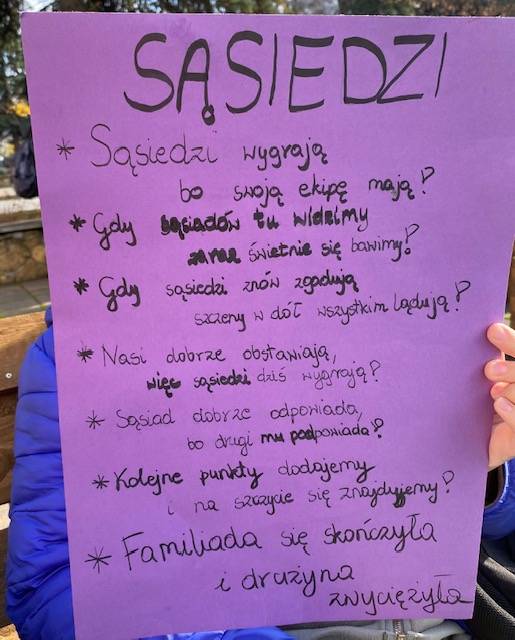 SĄSIEDZI
* Sąsiedzi wygrają
bo swoją ekipę mają!
* Gdy sąsiadów tu widzimy
zaraz świetnie się bawimy!
* Gdy sąsiedzi znów zgadują
szczeny w dół wszystkim lądują!
* Nasi dobrze obstawiają,
więc sąsiedzi dziś wygrają!
* Sąsiad dobrze odpowiada,
bo drugi mu podpowiada!
* Kolejne punkty dodajemy
i na szczycie się znajdujemy!
* Familiada się skończyła
i drużyna
zwyciężyła